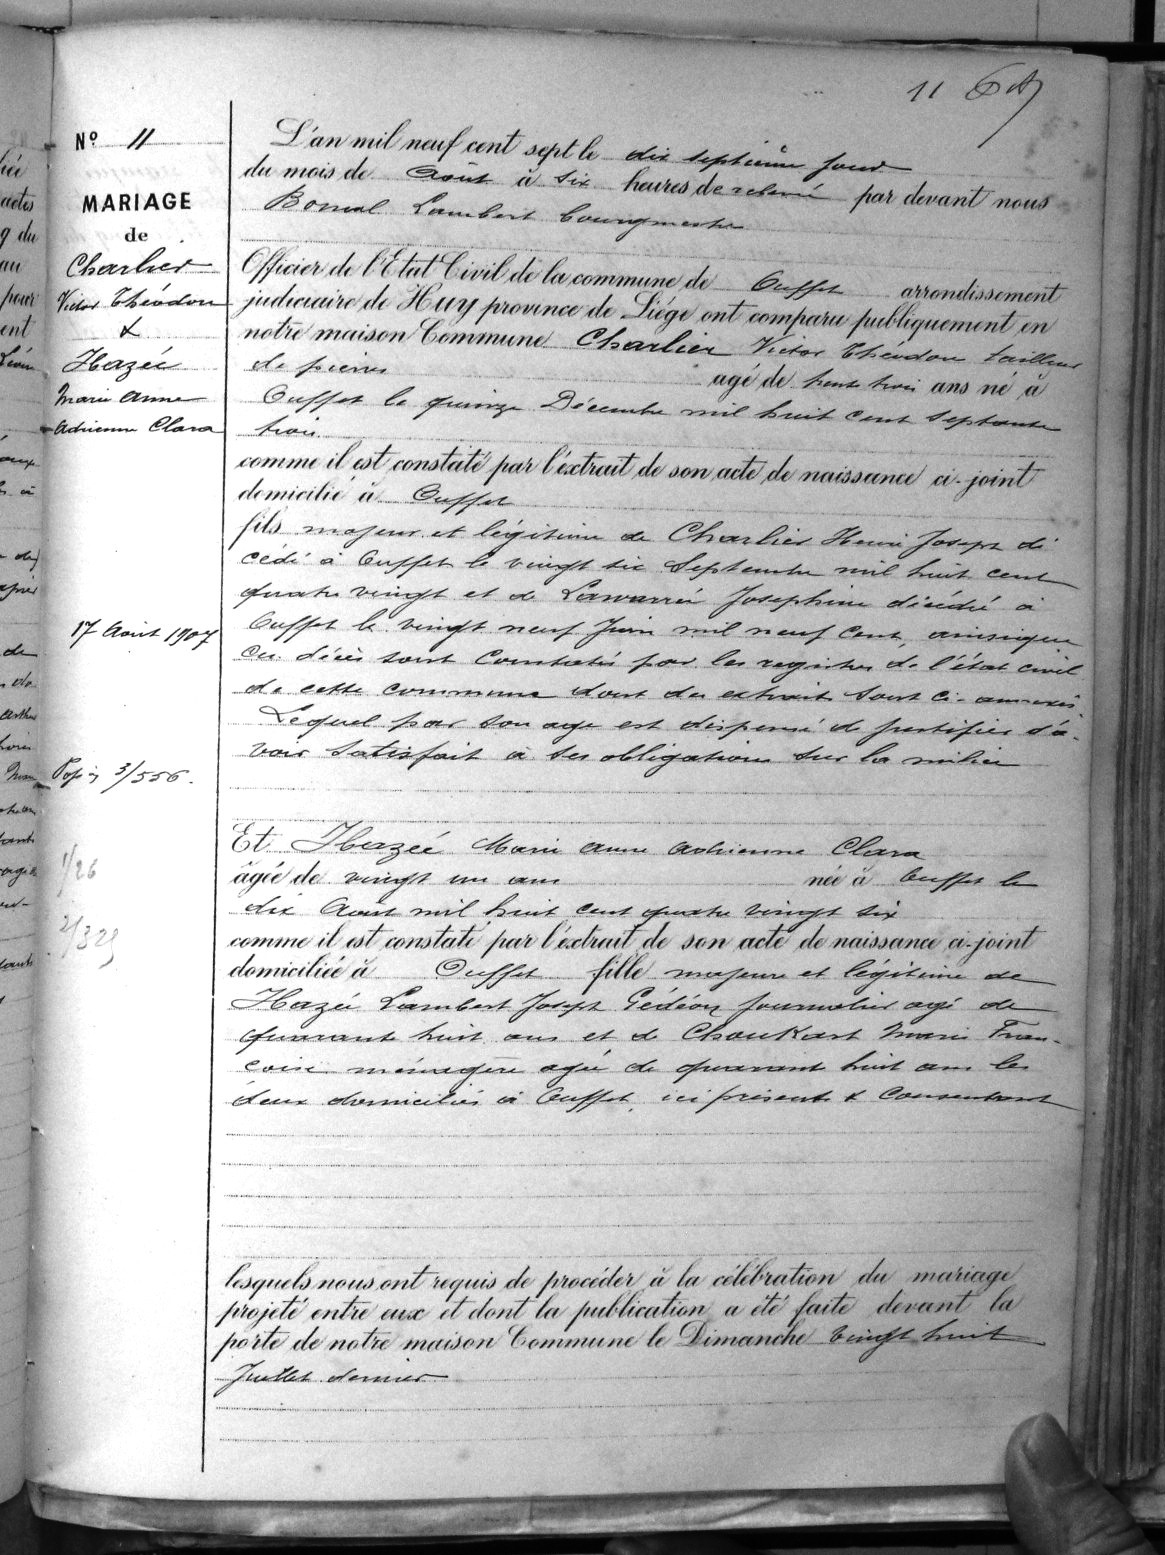 11
Nº 11
MARIAGE
de
Charlier
Victor Théodore
&
Hazée
Marie Anne
Adrienne Clara
17 Août 1907
3/556.
1/26
L'an mil neuf cent sept le dix septième jour
du mois de Août à six heures de relevée par devant nous
Bomal Lambert bourgmestre
Officier de l'Etat Civil de la commune de Ouffet arrondissement
judiciaire de Huy province de Liége ont comparu publiquement en
notre maison Commune Charlier Victor Théodore tailleur
de pierres agé de trente trois ans né à
Ouffet le quinze Décembre mil huit cent septante
trois
comme il est constaté par l'éxtrait de son acte de naissance ci-joint
domicilié à Ouffet
fils majeur et légitime de Charlier Henri Joseph dé
cédé à Ouffet le vingt six Septembre mil huit cent
quatre vingt et de Lawarrée Josephine décédée à
Ouffet le vingt neuf Juin mil neuf cent, ainsi que
ces décès sont constatés par les registres de l'état civil
de cette commune dont des extraits sont ci-annexés.
Lequel par son age est dispensé de justifier d'a-
voir satisfait à ses obligations sur la milice
Et Hazée Marie Anne Adrienne Clara
âgée de vingt un ans née à Ouffet le
dix Août mil huit cent quatre vingt six
comme il est constaté par l'éxtrait de son acte de naissance ci-joint
domiciliée à Ouffet fille majeure et légitime de
Hazée Lambert Joseph Gédéon journalier agé de
quarante huit ans et de Choukart Marie Fran-
çoise ménagère agée de quarante huit ans les
deux domiciliés à Ouffet, ici présents & consentant
lesquels nous ont requis de procéder à la célébration du mariage
projeté entre eux et dont la publication a été faite devant la
porte de notre maison Commune le Dimanche vingt huit
Juillet dernier